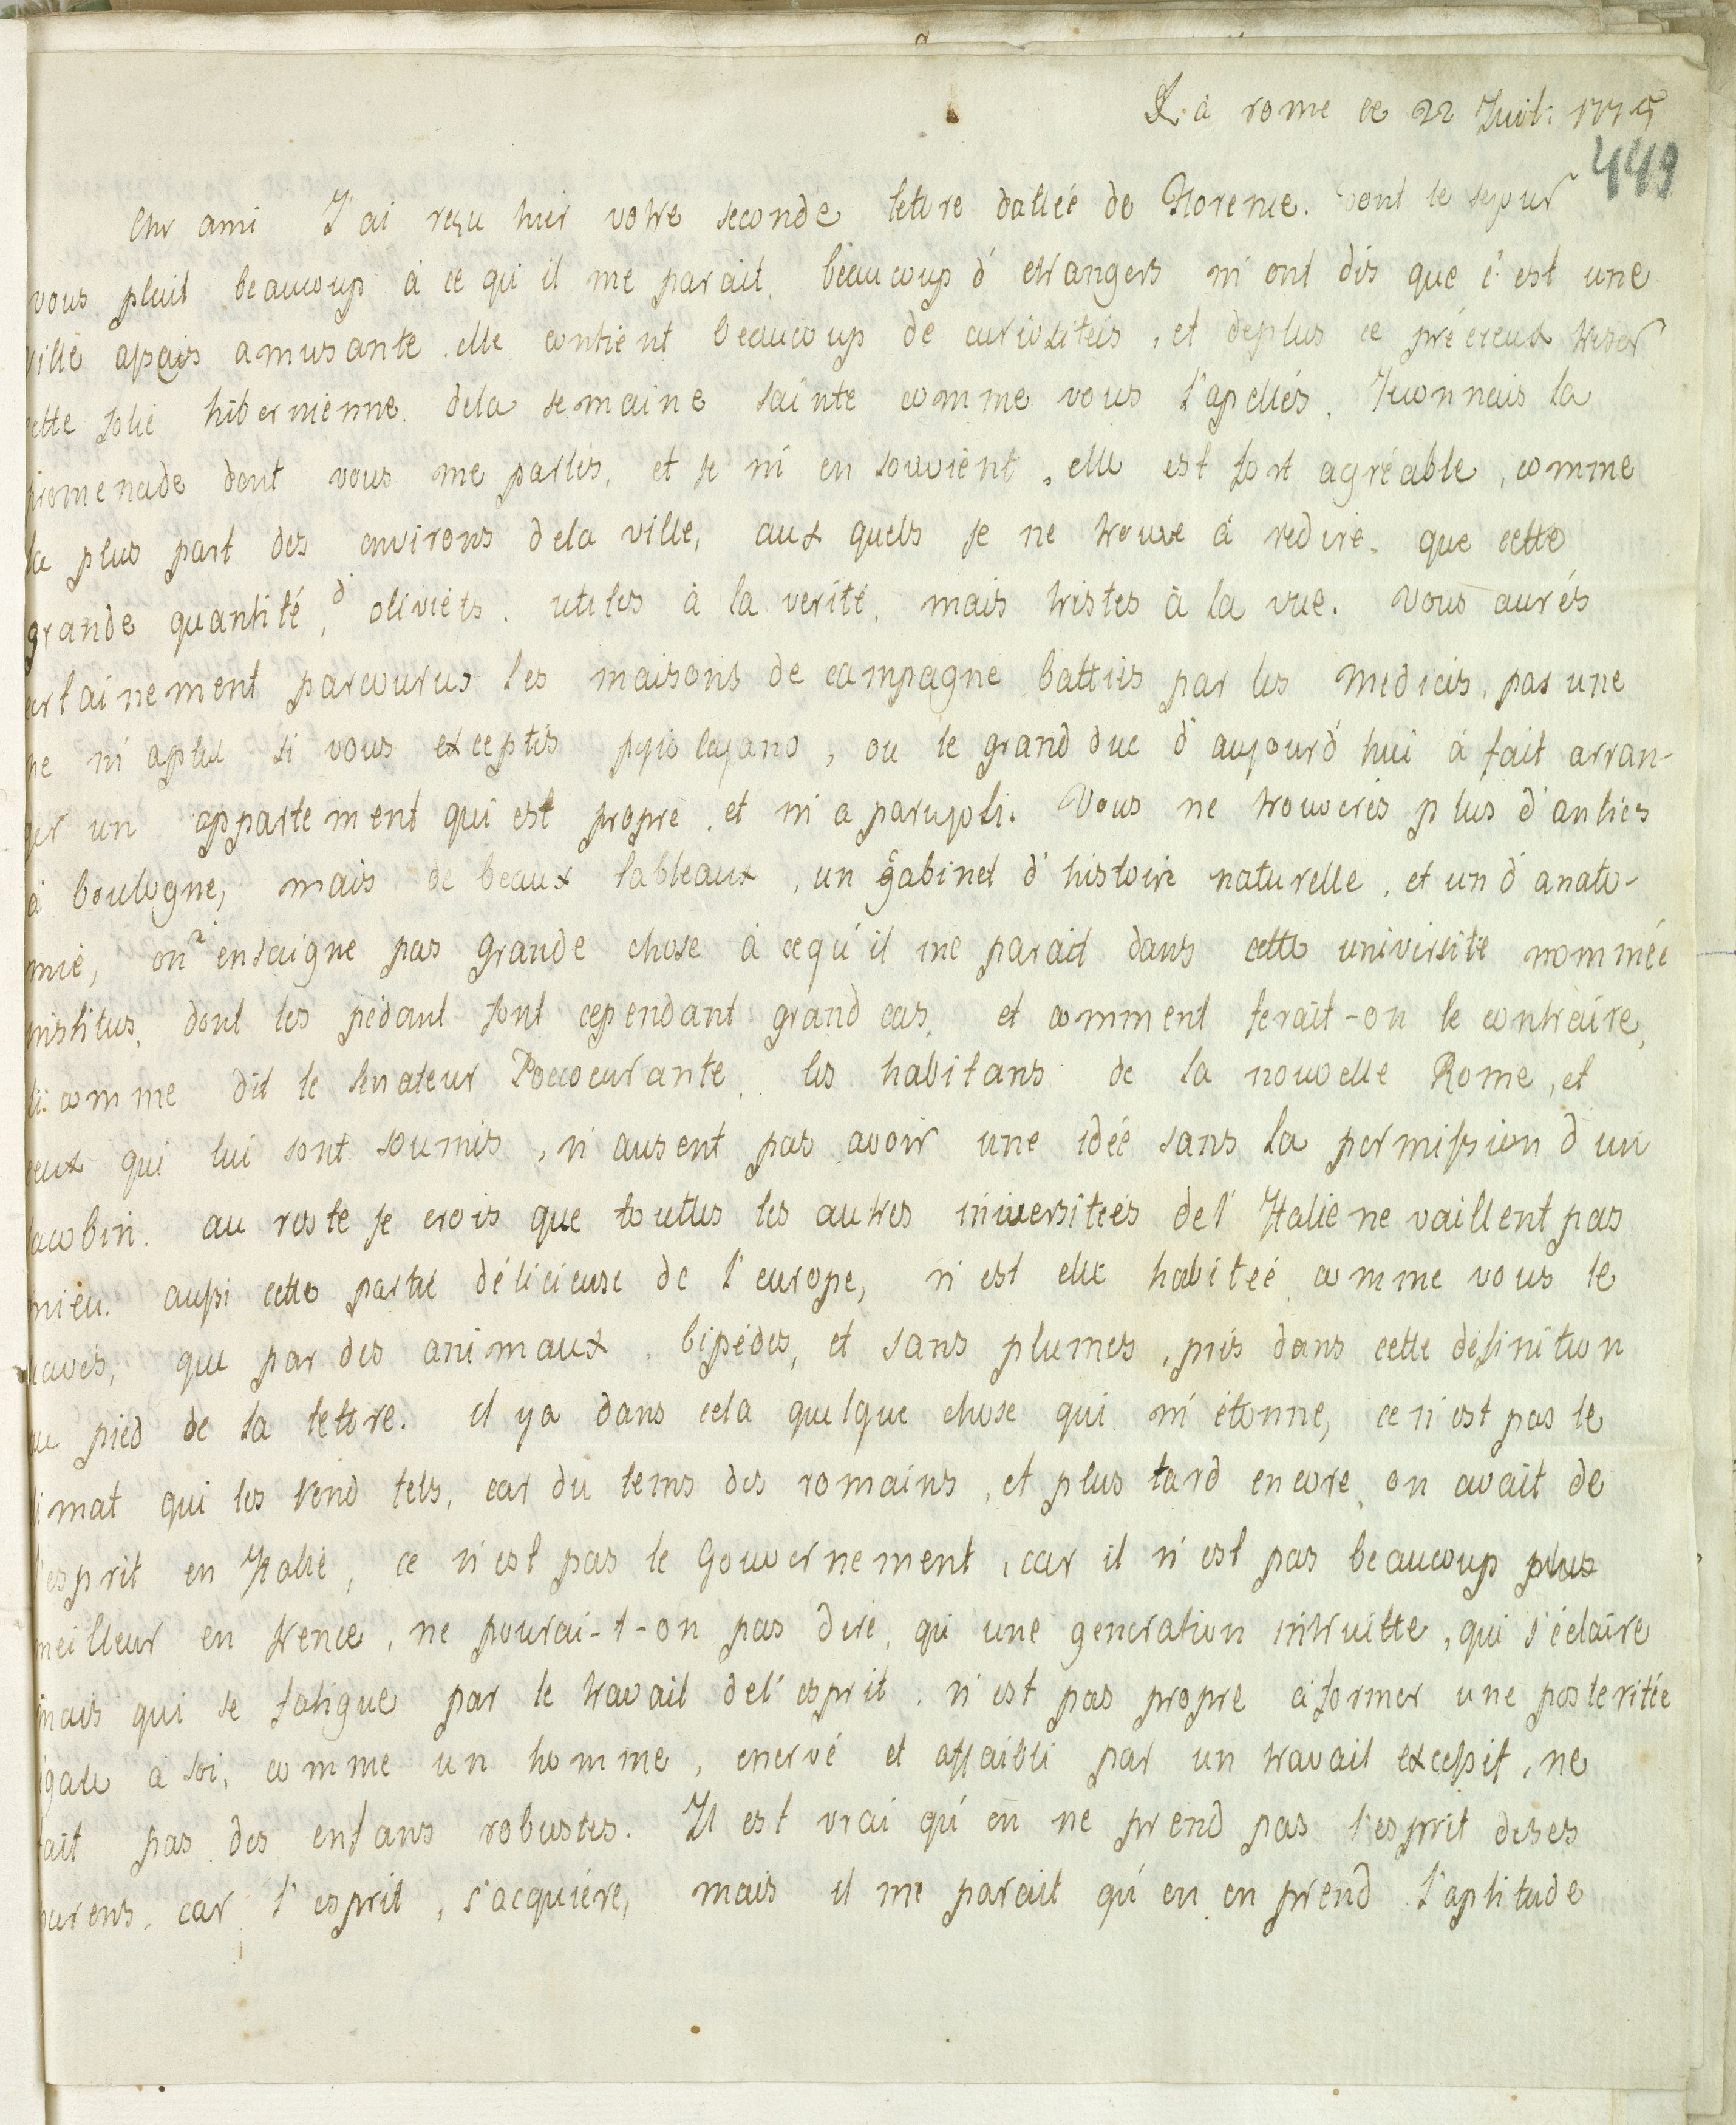 à rome ce 22 Juil: 1775
449
Chr ami J'ai reçu hier votre seconde lettre dattéé de Florence. dont le sejour
vous plait beaucoup à ce qu'il me parait. beaucoup d'etrangers m'ont dis que c'est une
ville assés amusante. elle contient beaucoup de curiositeés, et deplus ce précieux tresor
cette jolie hibernienne. dela semaine sainte comme vous l'apellés. Jeconnais la
promenade dont vous me parlés, et je m'en souvient, elle est fort agréable, comme
la plus part des environs dela ville, aux quels je ne trouve à redire. que cette
grande quantité, d'oliviers. utiles à la verité, mais tristes à la vue. Vous aurés
certainement parcourus les maisons de campagne batties par les Medicis, pas une
ne m'aplu si vous exceptés pojo cajano, ou le grand duc d'aujourd'hui à fait arran-
ger un appartement qui est propre, et m'a parujoli. Vous ne trouverés plus d'antiés
à boulogne, mais de beaux tableaux, un gabinet d'histoire naturelle, et un d'anato-
mie, on n'ensaigne pas grande chose à cequ'il me parait dans cette université nommée
institus, dont les pédant font cependant grand cas, et comment ferait-on le contraire,
si comme dit le senateur Pococurante, les habitans de la nouvelle Rome, et
ceux qui lui sont soumis, n'ausent pas avoir une idée sans la permission d'un
Jacobin. au reste je crois que touttes les autres universiteés de l'Italie ne vaillent pas
mieu. aussi cette partie délicieuse de l'europe, n'est elle habitéé comme vous le
savés, que par des animaux, bipédes, et sans plumes, pris dans cette définition
au pied de la lettre. il ya dans cela quelque chose qui m'étonne, ce n'est pas le
climat qui les rend tels, car du tems des romains, et plus tard encore, on avait de
l'esprit en Italie, ce n'est pas le Gouvernement, car il n'est pas beaucoup plus
meilleur en frence, ne pourai-t-on pas dire, qu'une generation intruitte, qui s'éclaire
mais qui se fatigue par le travail del'esprit. n'est pas propre àformer une posteritée
égale à soi, comme un homme, enervé et affaibli par un travail excessif, ne
fait pas des enfans robustes. Il est vrai qu'en ne prend pas l'esprit deses
parens, car l'esprit, s'acquiére, mais il me parait qu'en en prend l'aptitude